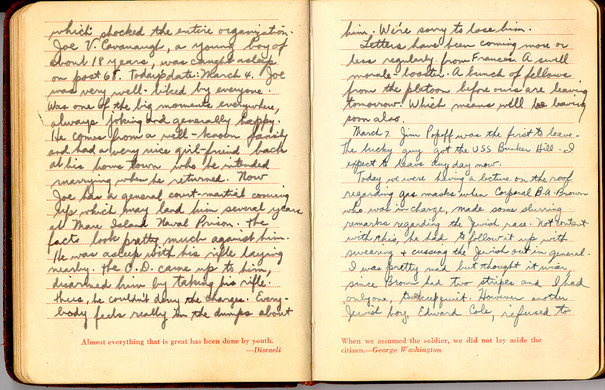 which shocked the entire organization.
Joe V. Cavanaugh, a young boy of
about 18 years, was caught asleep
on post 68. Today's date: March 4. Joe
was very well-liked by everyone.
Was one of the big moments everywhere,
always joking and generally happy.
He comes from a well-known family
and had a very nice girl-friend back
at his home town who he intended
marrying when he returned. Now
Joe has a general court-martial coming
up which may land him several years
at Mare Island Naval Prison. The
facts look pretty much against him.
He was asleep with his rifle laying
nearby. The O.D. came up to him,
disarmed him by taking his rifle.
Thus, he couldn't deny the charges. Every-
body feels really in the dumps about
Almost everything that is great has been done by youth.
—Disraeli
him. We're sorry to lose him.
Letters have been coming more or
less regularly from Frances. A swell
morale-booster. A bunch of fellows
from the platoon before ours are leaving
tomorrow. Which means we'll be leaving
soon also.
March 7. Jim Popoff was the first to leave-
the lucky guy got the USS Bunker Hill. I
expect to leave any day now.
Today we were having a lecture on the roof
regarding gas masks when Corporal B.A. Brown
who was in charge, made some slurring
remarks regarding the Jewish race. Not content
with this, he had to follow it up with
swearing & cussing the Jewish out in general.
I was pretty mad but thought it wise,
since Brown had two stripes and I had
only one, to keep quiet. However another
Jewish boy, Edward Cole, refused to
When we assumed the soldier, we did not lay aside the
citizen.—George Washington